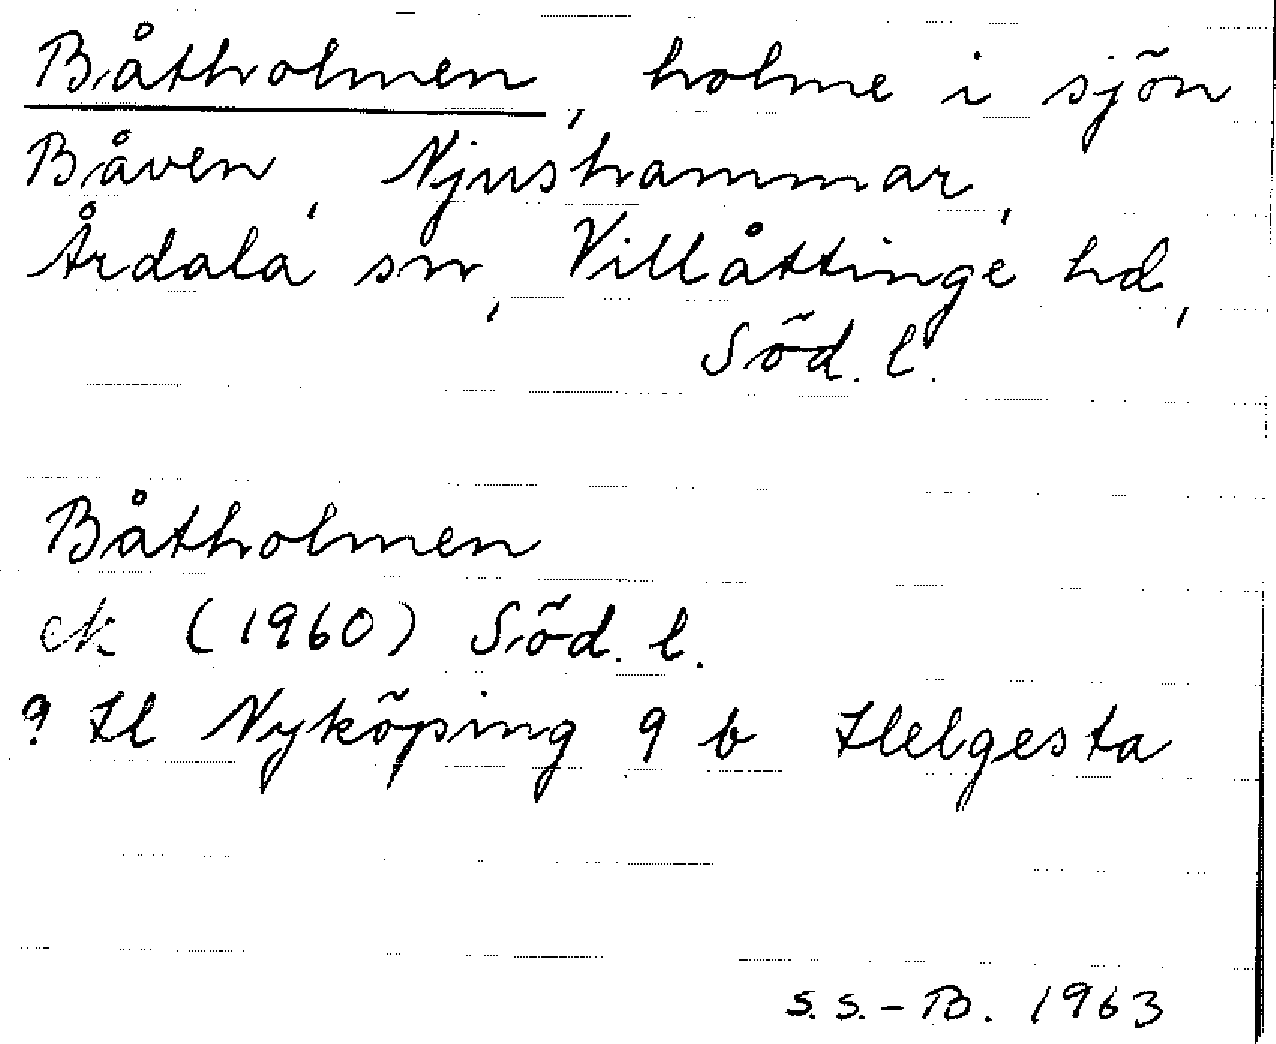 Båtholmen, holme i sjön
Båven, Njushammar,
Årdala sn, Villåttinge hd,
Söd. l.
Båtholmen
ek (1960) Söd. l.
? H l Nyköping 9 b Helgesta
S.S.-B. 1963